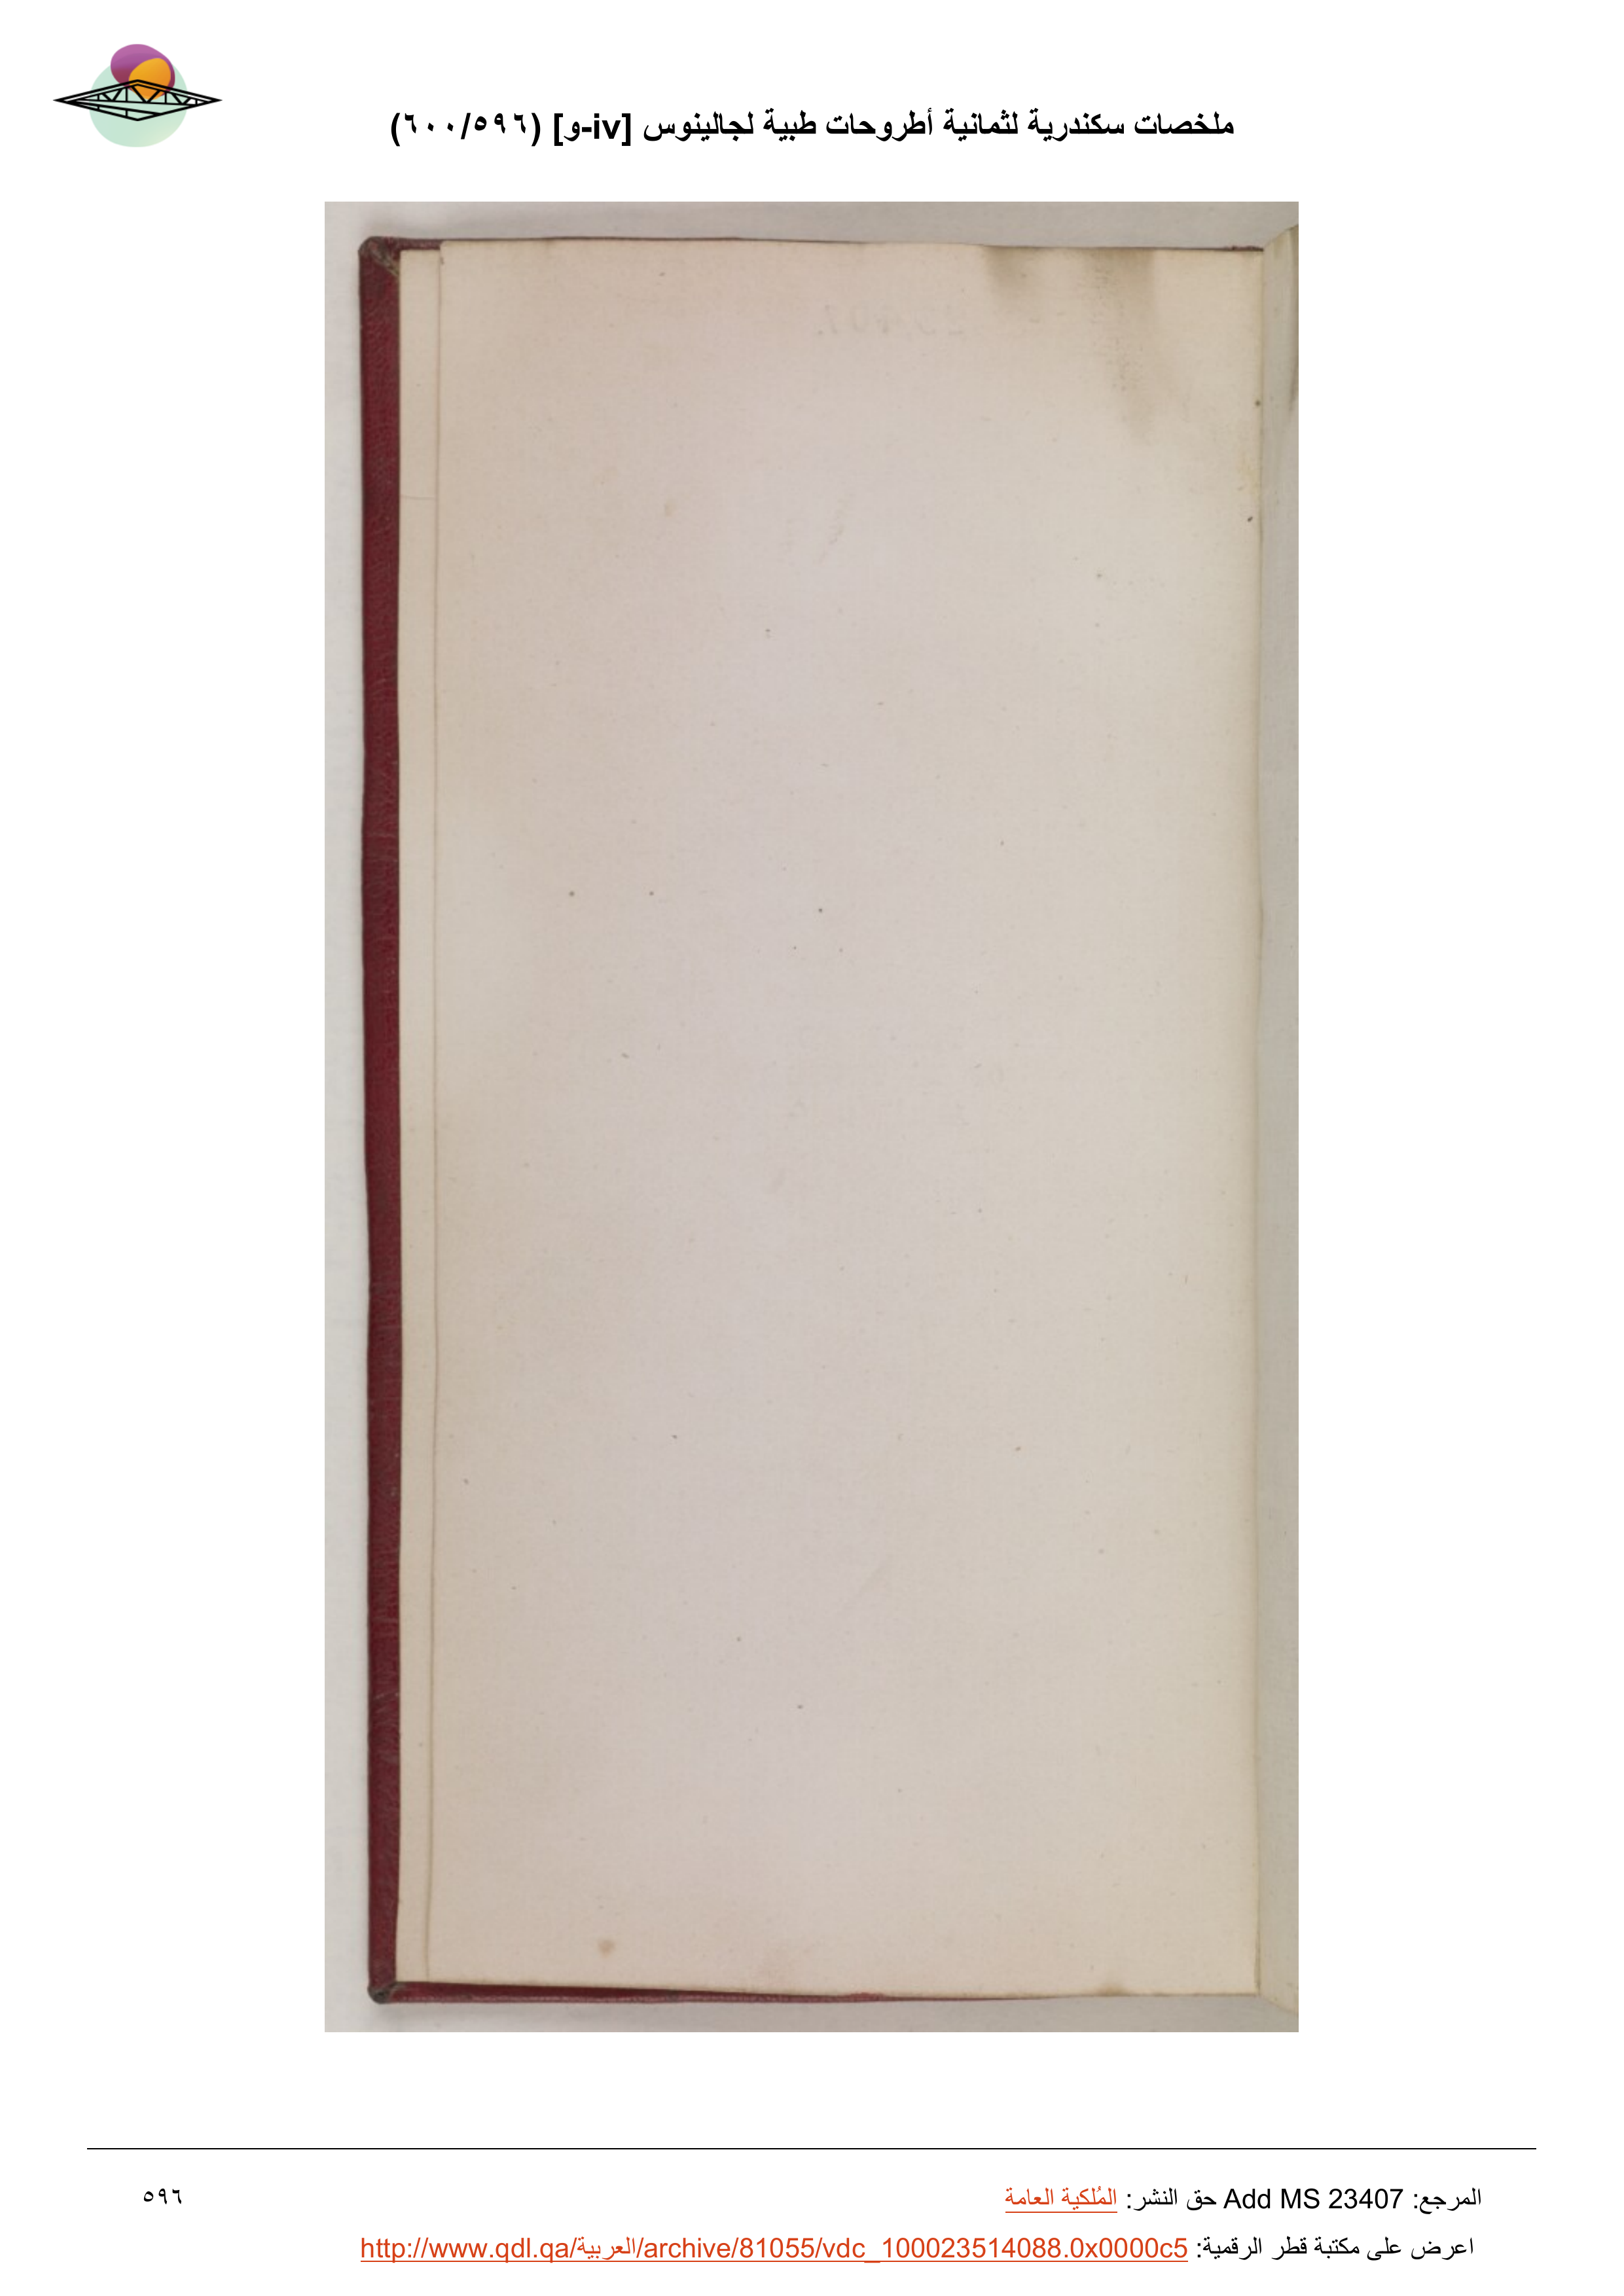 ملخصات سكندرية لثمانية أطروحات طبية لجالينوس [iv-و] (٥٩٦/٦٠٠)
المرجع: Add MS 23407 حق النشر: المُلكية العامة
٥٩٦
اعرض على مكتبة قطر الرقمية: http://www.qdl.qa/العربية/archive/81055/vdc_100023514088.0x0000c5